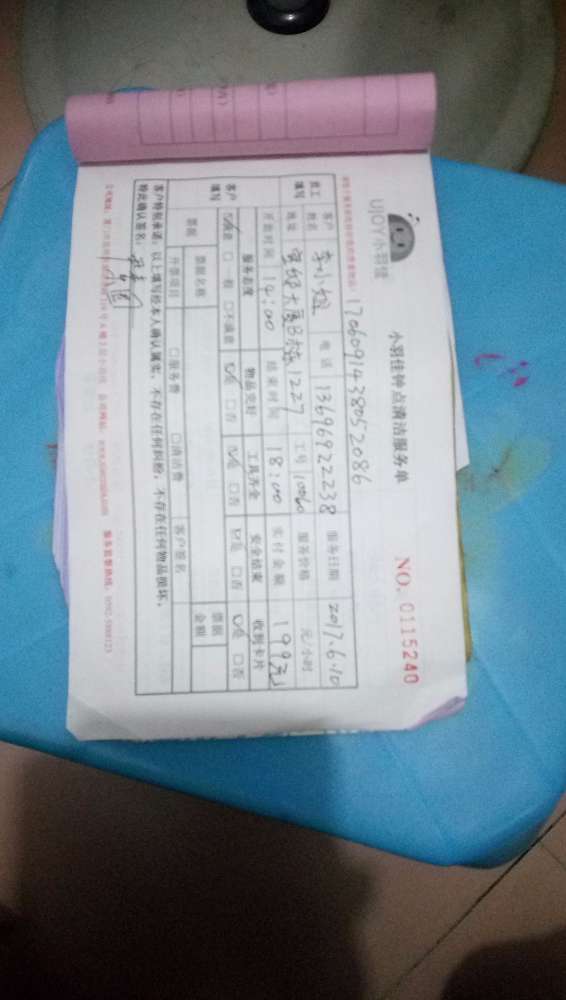 UJOY小羽佳
小羽佳钟点清洁服务单
NO. 0115240
1706091438052086
员工填写
客户姓名 李小姐 电话 13696922238 服务日期 2017.6.10
地址 大厦B栋1227 工号 10060 服务价格 元/小时
开始时间 14:00 结束时间 18:00 实付金额 199元
客户填写
服务态度 物品完好 工具齐全 安全结束 收到卡片
☑满意 □一般 □不满意 ☑是 □否 ☑是 □否 ☑是 □否 ☑是 □否
票据 票据名称 票据金额
开票项目 □服务费 □清洁费 客户签名
客户特别承诺:以上填写经本人确认属实,不存在任何纠纷,不存在任何物品损坏,
特此确认签名: